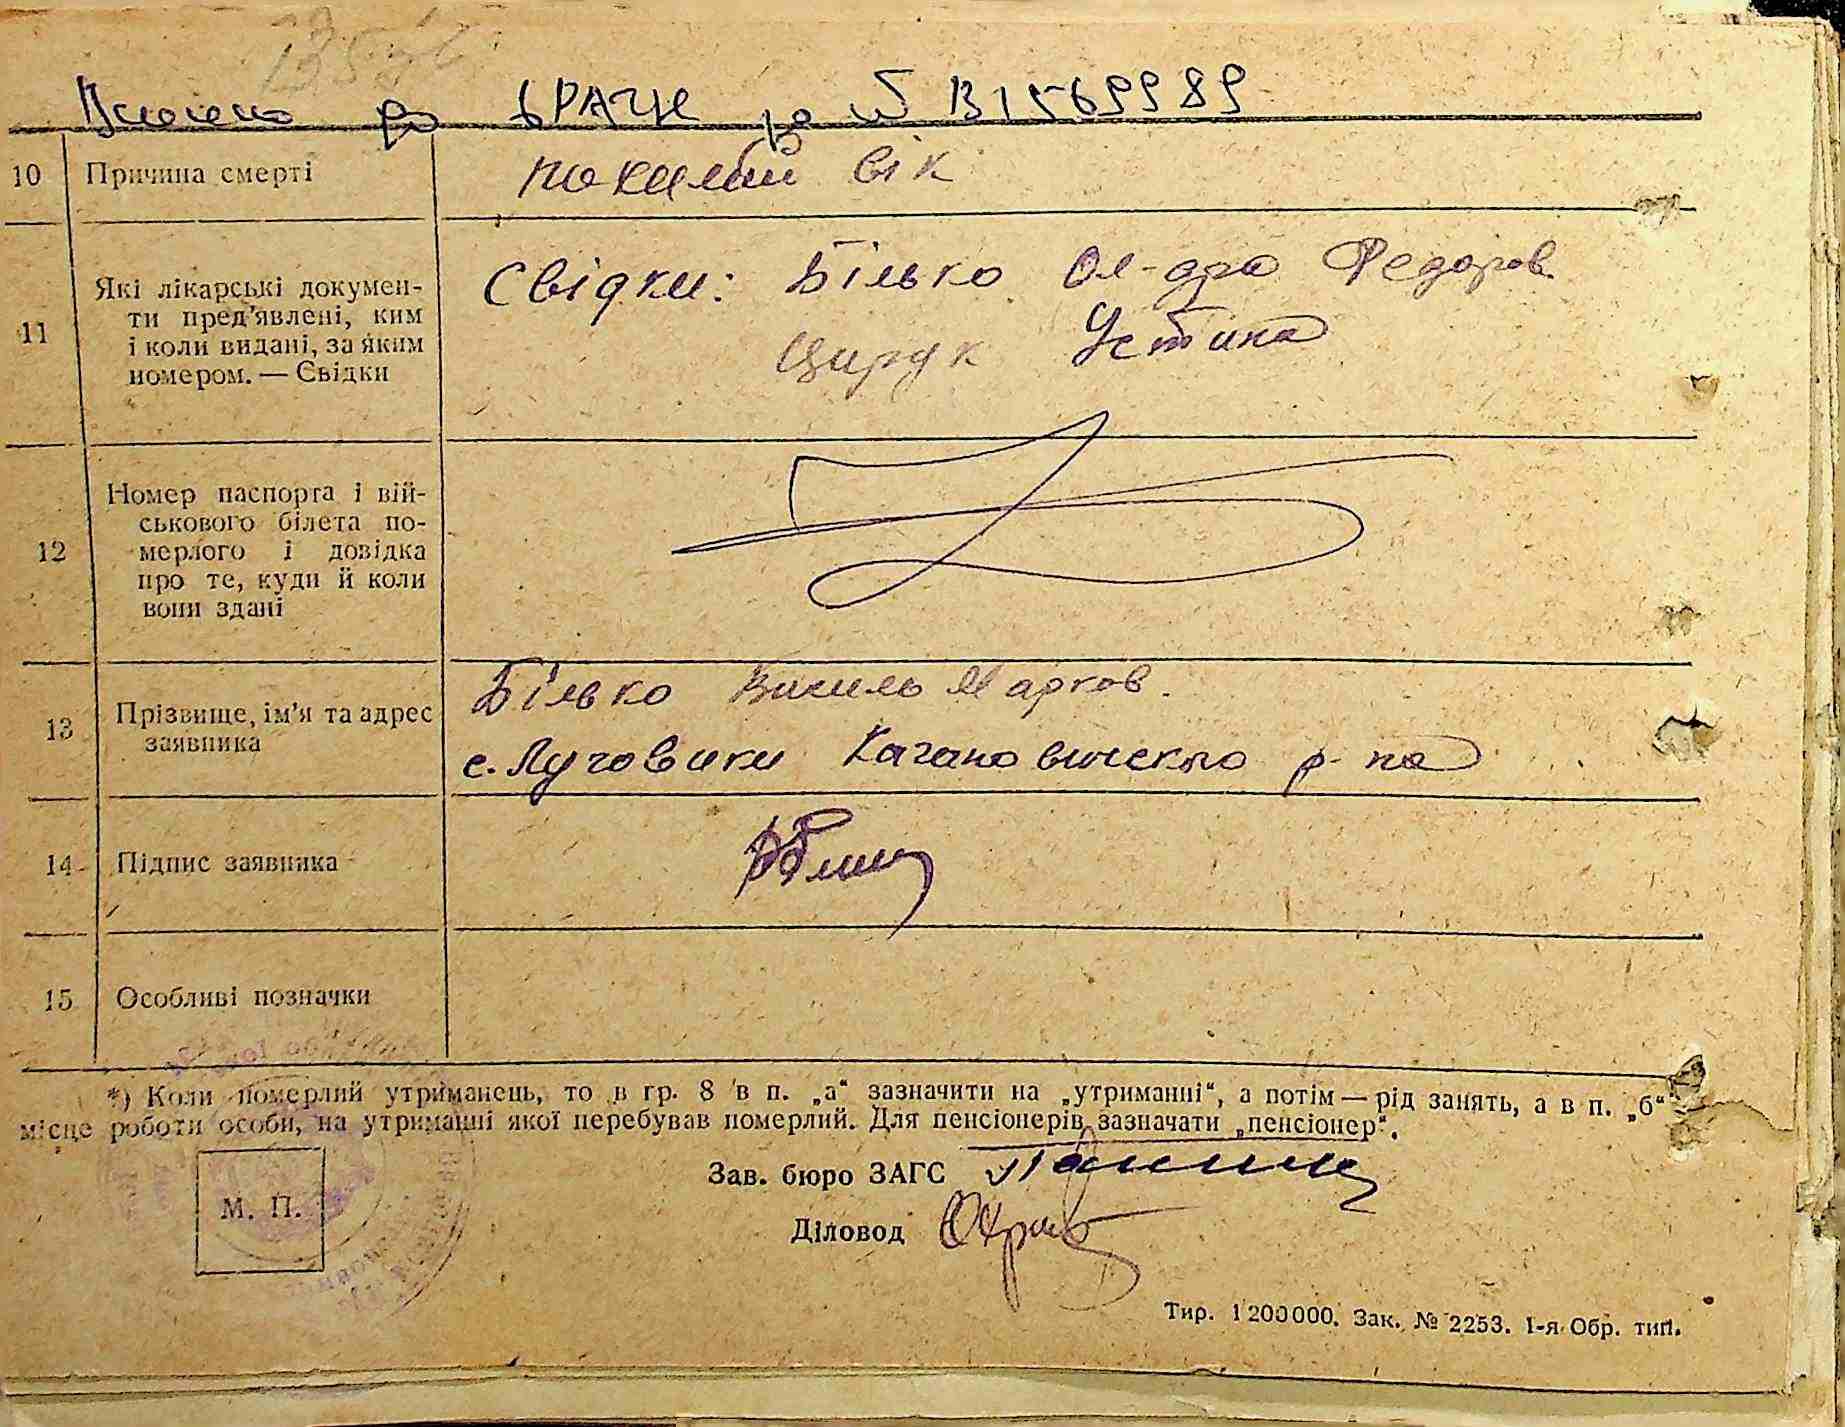 Внесено до ЬРАЦС за № 131569989
10 Причина смерті похилий вік
11 Які лікарські докумен-
ти пред'явлені, ким
і коли видані, за яким
номером. — Свідки
Свідки: Білько Ол-дра Федоров.
Цирук Устина
12 Номер паспорта і вій-
ськового білета по-
мерлого і довідка
про те, куди й коли
вони здані
13 Прізвище, ім'я та адрес
заявника
Білько Василь Марков.
с. Луговики Кагановичського р-на
14 Підпис заявника
15 Особливі позначки
*) Коли померлий утриманець, то в гр. 8 в п. „а“ зазначити на „утриманні“, а потім — рід занять, а в п. „б“
місце роботи особи, на утриманні якої перебував померлий. Для пенсіонерів зазначати „пенсіонер“.
Зав. бюро ЗАГС
М. П.
Діловод
Тир. 1200000. Зак. № 2253. 1-я Обр. тип.